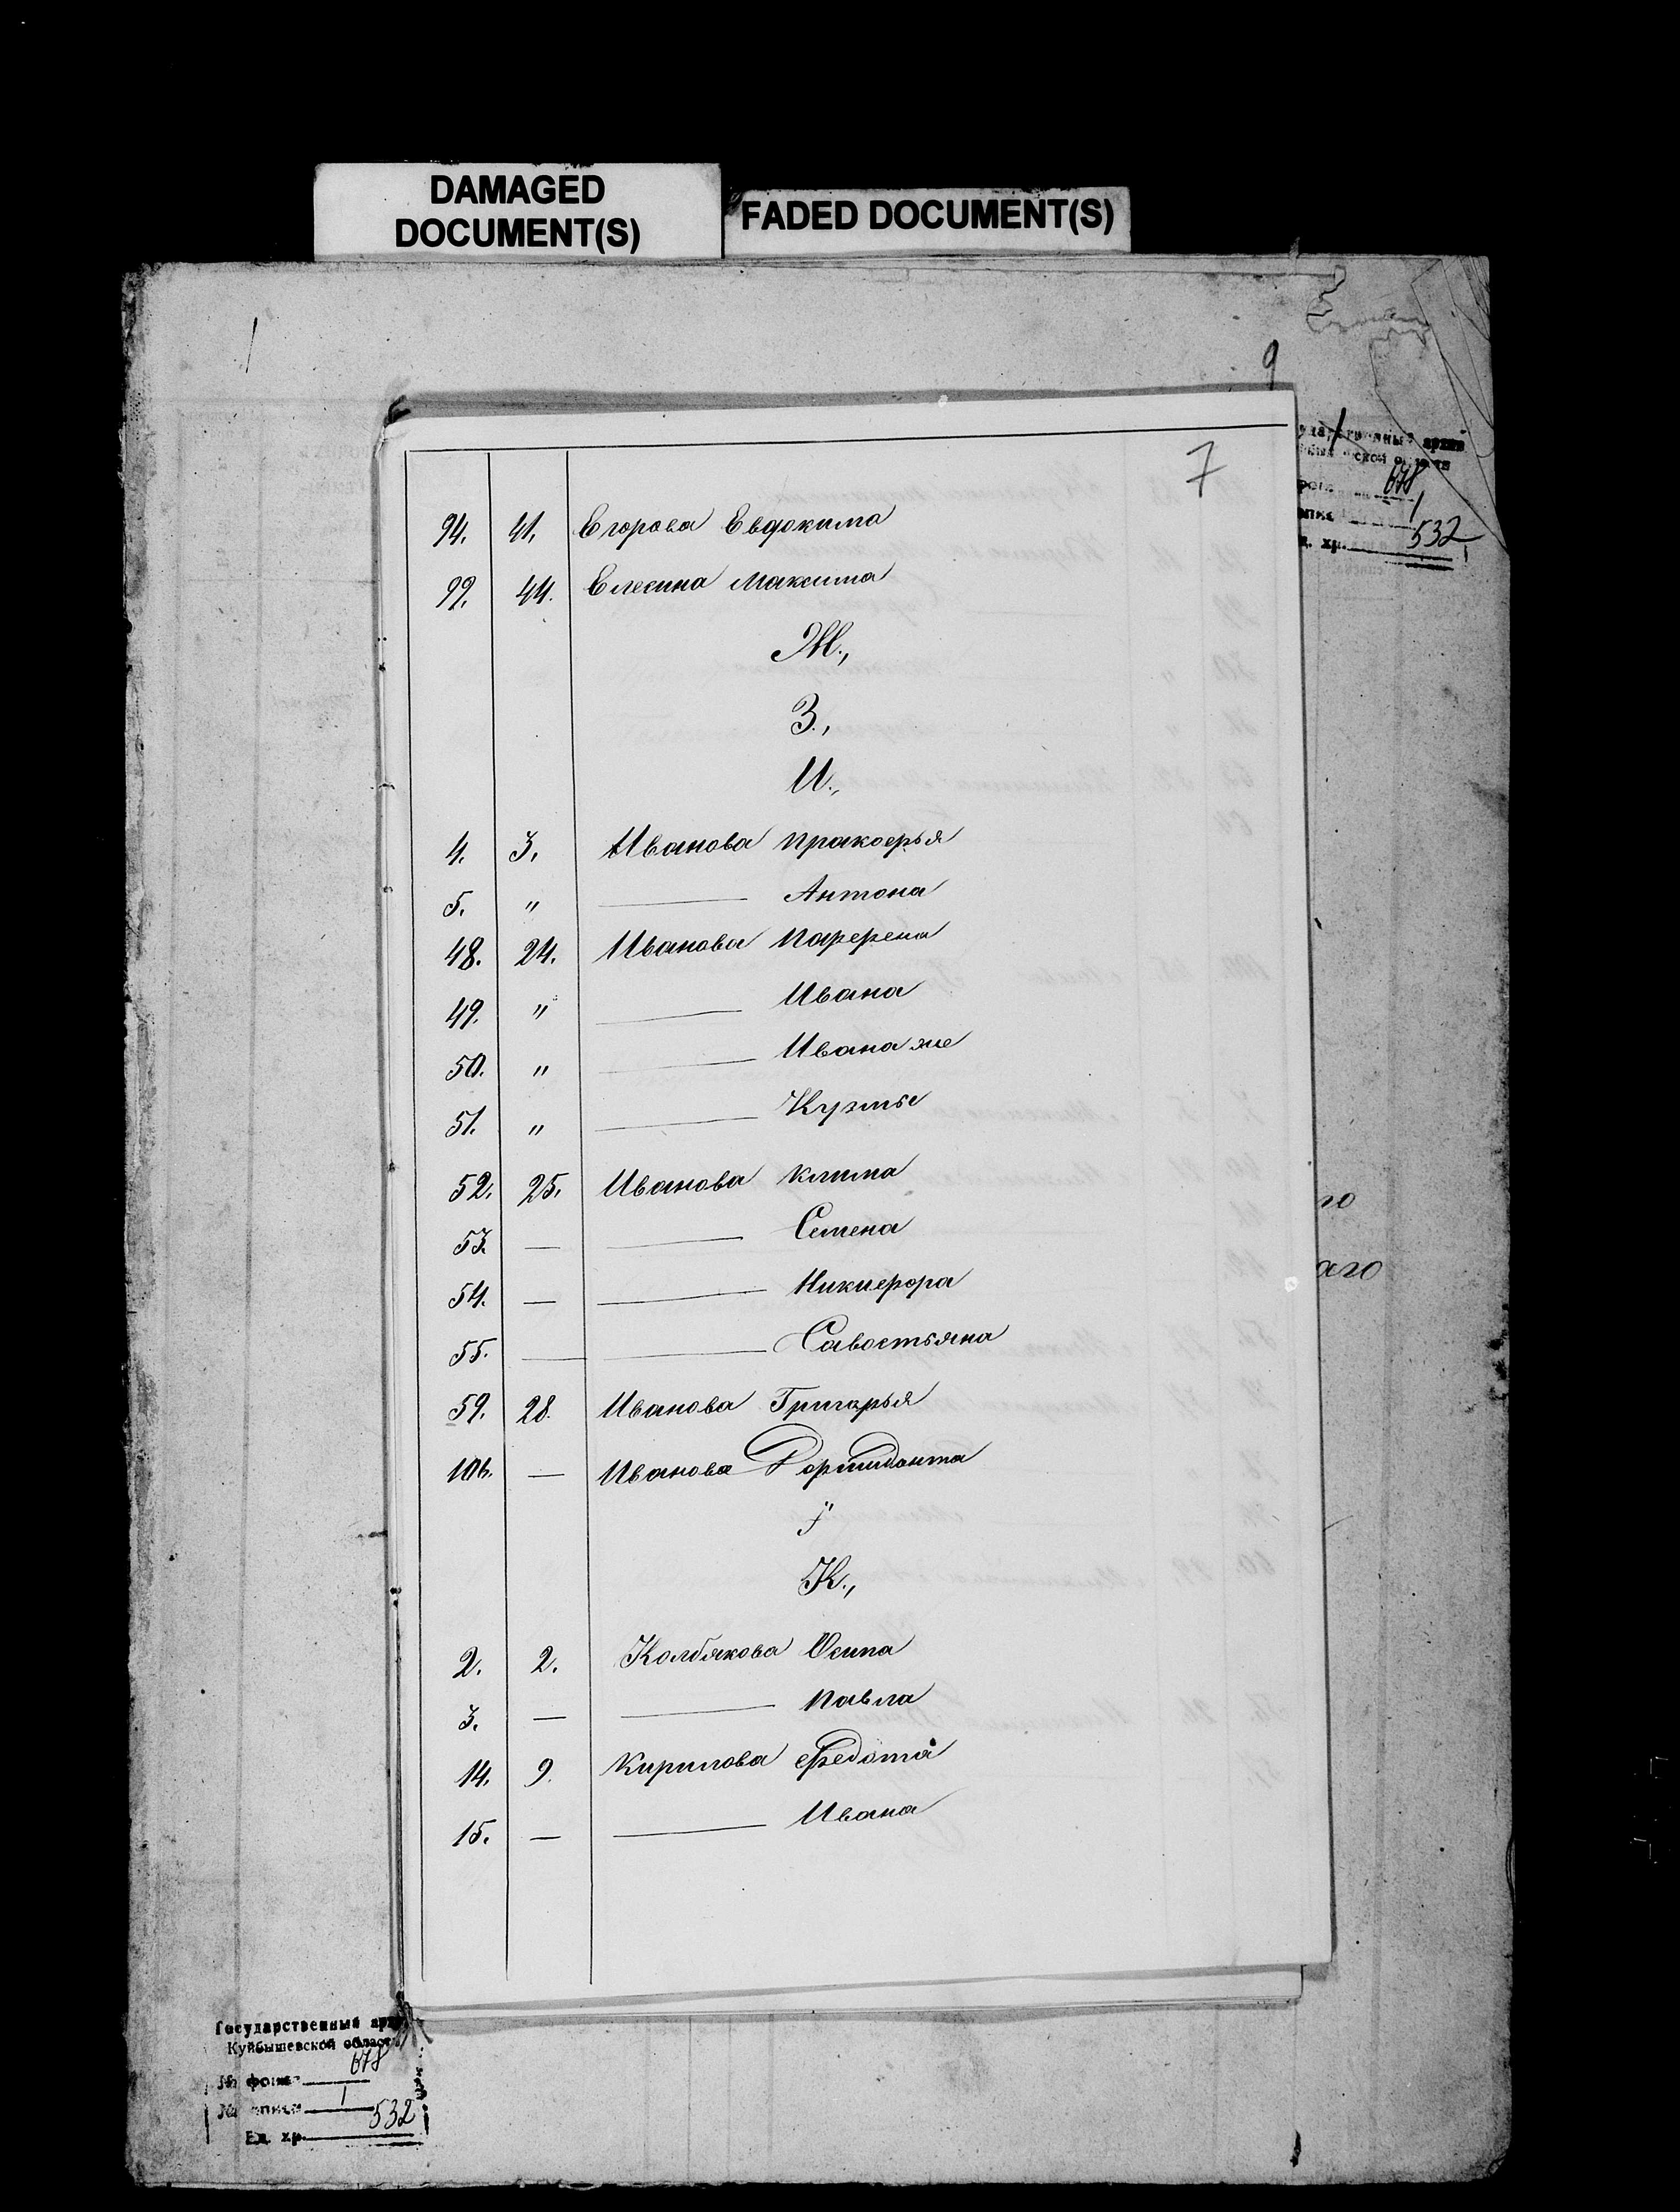 DAMAGED
DOCUMENT(S)
FADED DOCUMENT(S)
9
7
678
1
532
94. 41. Егорова Евдокима
99. 44. Елесина Максима
Ж.,
З.,
И.,
4. 3. Иванова Пракофья
5. " —— Антона
48. 24. Иванова Парфена
49. " —— Ивана
50. " —— Ивана же
51. " —— Кузмы
52. 25. Иванова Клима
53. — —— Семена
54. — —— Никифора
55. — —— Савостьяна
59. 28. Иванова Григорья
106. — Иванова Дормидонта
Ӏ
К.,
2. 2. Колбякова Осипа
3. — —— Павла
14. 9. Кирилова Федота
15. — —— Ивана
го
аго
Государственный арх
Куйбышевской област
№ фонда 678
№ описи 1
Ед. хр. 532